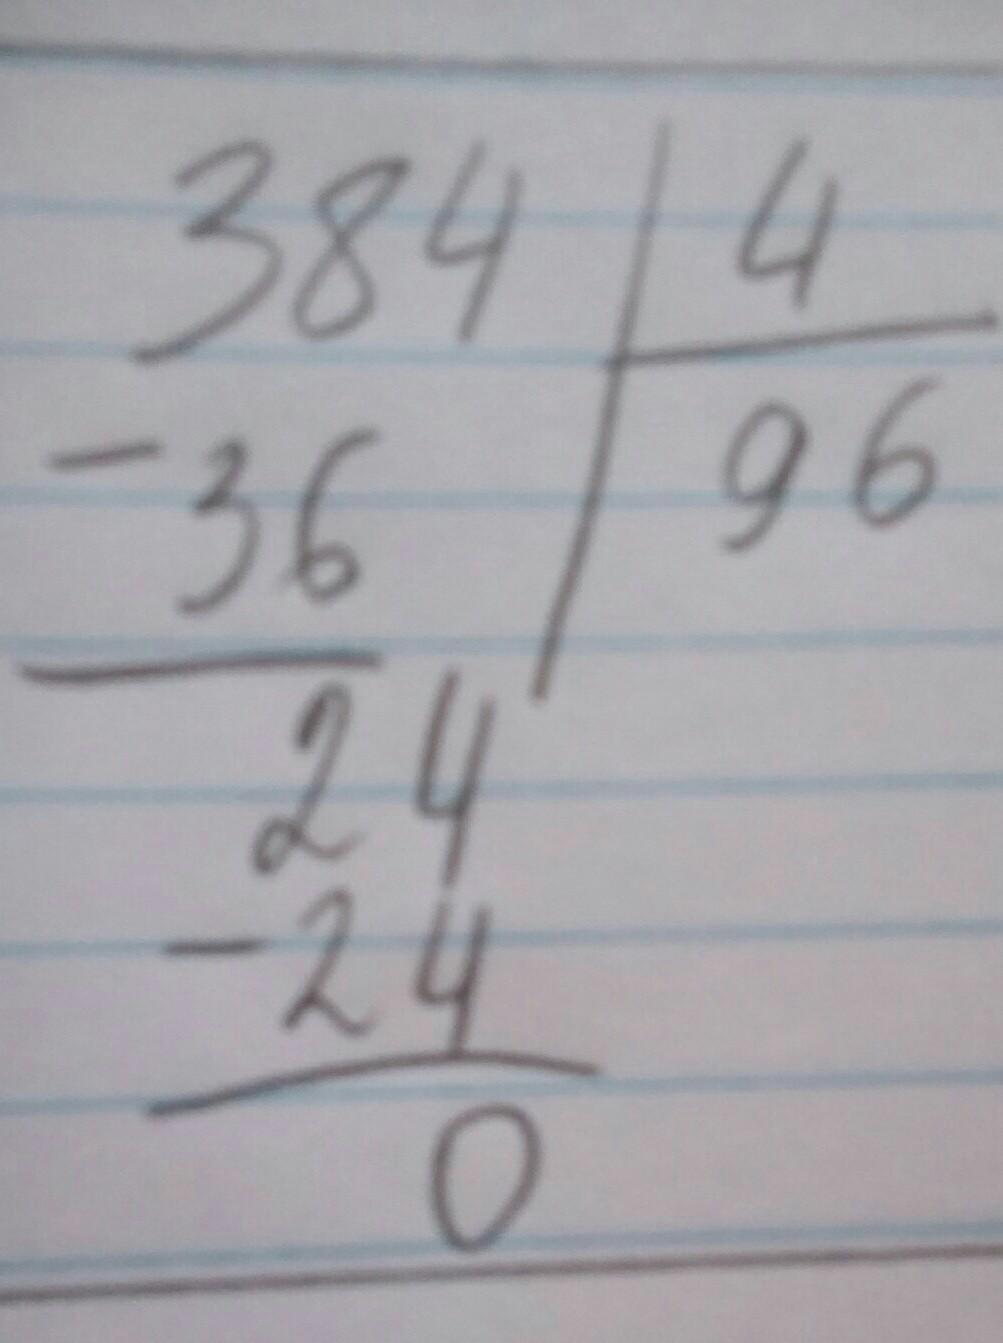 384 | 4
-36 | 96
24
-24
0